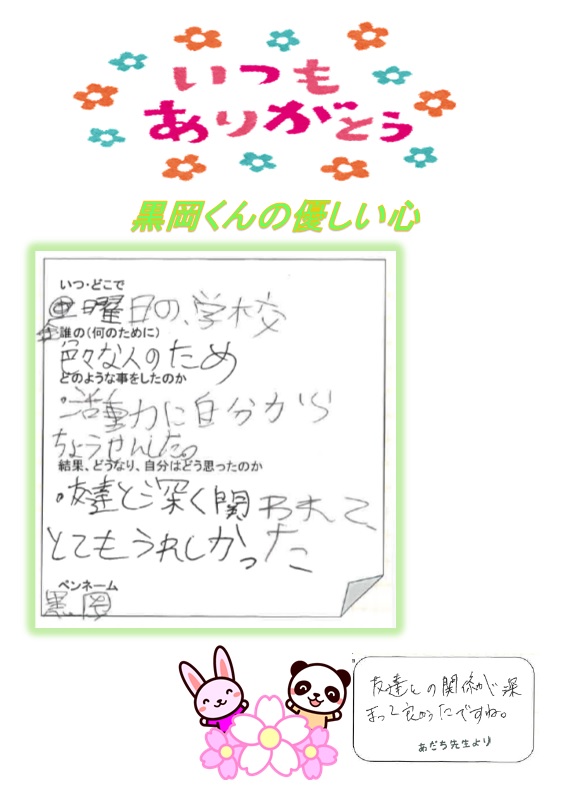 いつも
ありがとう
黒岡くんの優しい心
いつ・どこで
土曜日の、学校
誰の(何のために)
色々な人のため
どのような事をしたのか
・活動力に自分から
ちょうせんした。
結果、どうなり、自分はどう思ったのか
・友達と深く関われて、
とてもうれしかった
ペンネーム
黒岡
友達との関係が深
まって良かったですね。
あだち先生より